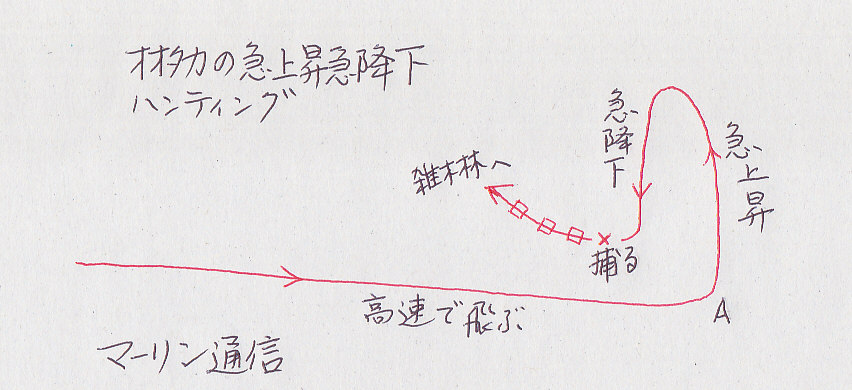 オオタカの急上昇急降下
ハンティング
急降下
急上昇
雑木林へ
捕る
高速で飛ぶ
A
マーリン通信